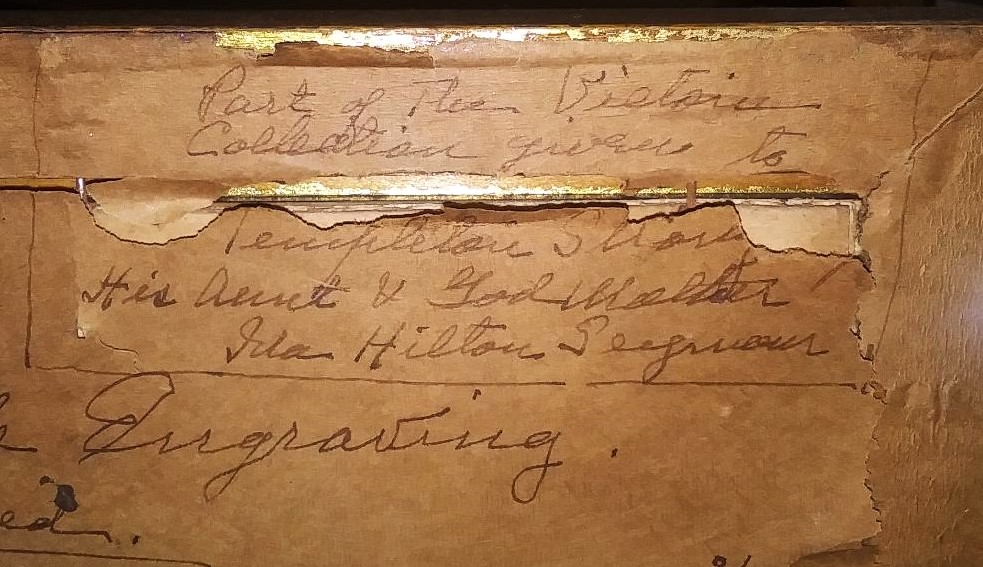 Part of The Victoria
Collection given to
Templeton Strong
His Aunt & God Mother
Ida Hilton Seymour
Engraving.
ed.